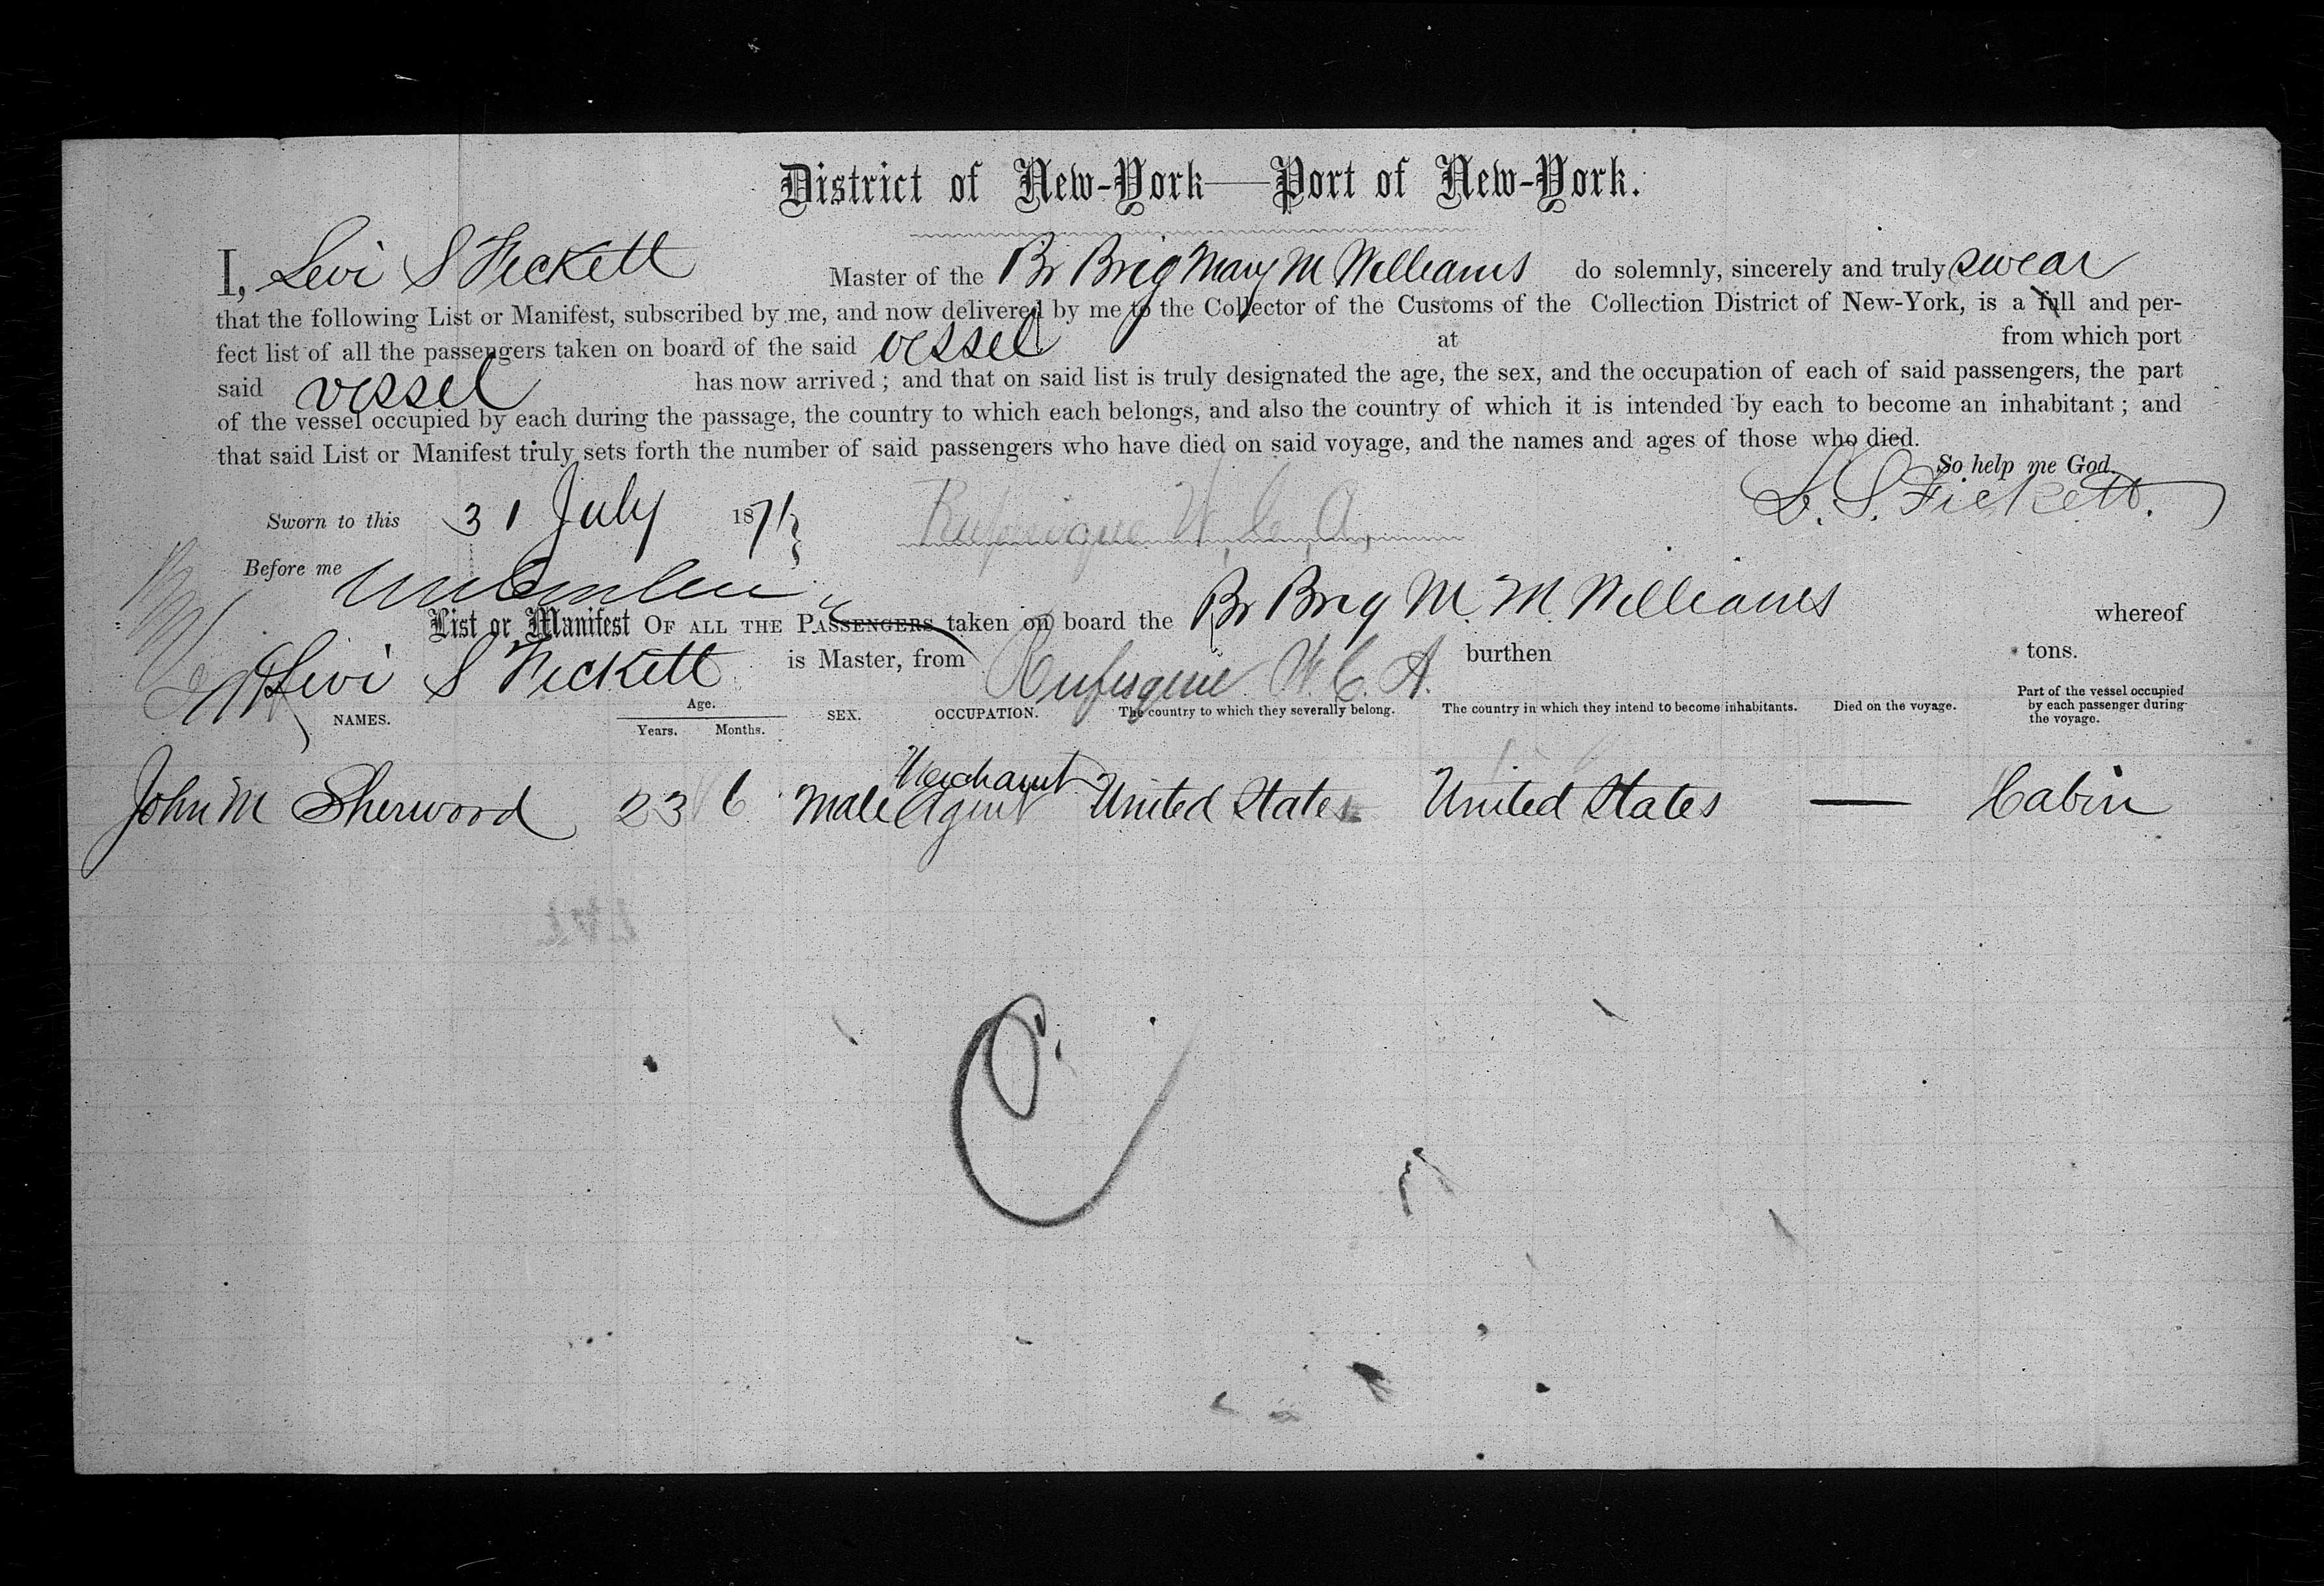 District of New-York—Port of New-York.
I, Levi S Fickett Master of the Br Brig Mary M Williams do solemnly, sincerely and truly swear
that the following List or Manifest, subscribed by me, and now delivered by me to the Collector of the Customs of the Collection District of New-York, is a full and per-
fect list of all the passengers taken on board of the said vessel at from which port
said vessel has now arrived; and that on said list is truly designated the age, the sex, and the occupation of each of said passengers, the part
of the vessel occupied by each during the passage, the country to which each belongs, and also the country of which it is intended by each to become an inhabitant; and
that said List or Manifest truly sets forth the number of said passengers who have died on said voyage, and the names and ages of those who died.
So help me God.
L. S. Fickett.
Sworn to this 31 July 1871 Rufisque W. C. A.
Before me
List or Manifest OF ALL THE PASSENGERS taken on board the Br Brig M. M. Williams whereof
Levi S Fickett is Master, from Rufisque W. C. A. burthen tons.
NAMES. Age. Years. Months. SEX. OCCUPATION. The country to which they severally belong. The country in which they intend to become inhabitants. Died on the voyage. Part of the vessel occupied by each passenger during the voyage.
John M Sherwood 23 6 Male Merchant Agent United States United States — Cabin
C